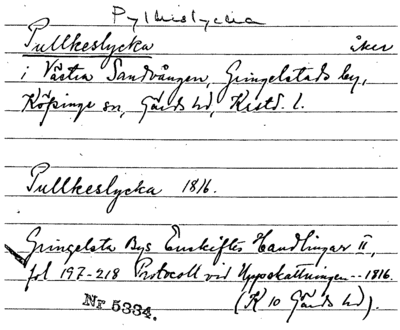 Pylkislyckia
Pullkeslycka åker
i Västra Sandvången, Gringelstads by,
Köpinge sn, Gärds hd, Kristd. l.
Pullkeslycka 1816.
Gringelsta Bys Enskiftes Handlingar II,
fol 197-218 Protocoll vid Uppskattningen -- 1816.
(K 10 Gärds hd).
Nr 5334.